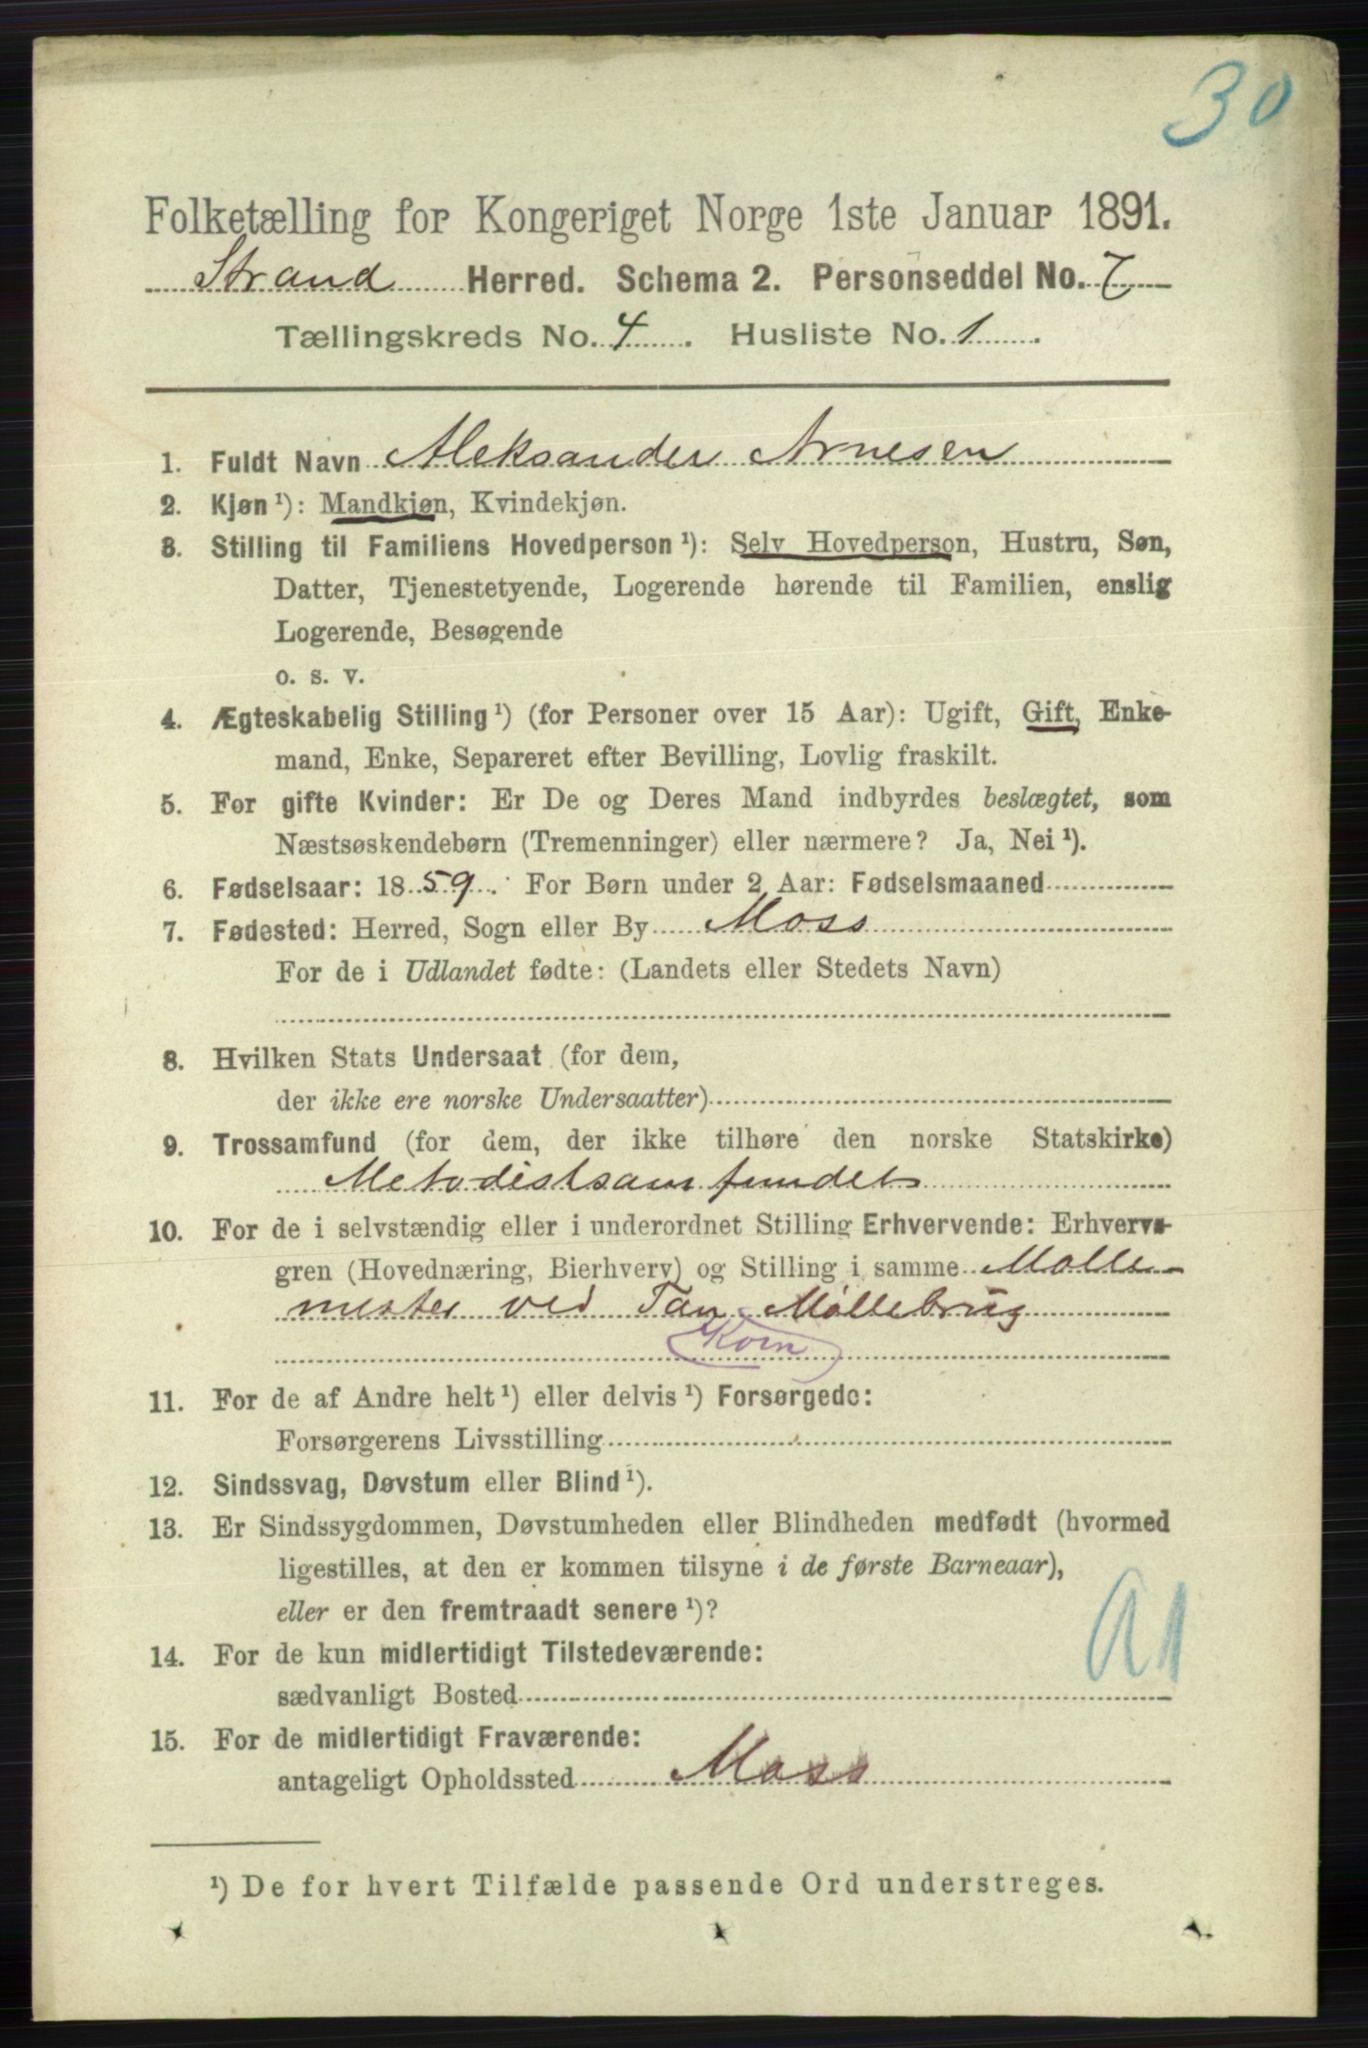 30
Folketælling for Kongeriget Norge 1ste Januar 1891.
Strand Herred. Schema 2. Personseddel No. 7
Tællingskreds No. 4. Husliste No. 1.
1. Fuldt Navn Aleksander Arnesen
2. Kjøn ¹): Mandkjøn, Kvindekjøn.
3. Stilling til Familiens Hovedperson ¹): Selv Hovedperson, Hustru, Søn,
Datter, Tjenestetyende, Logerende hørende til Familien, enslig
Logerende, Besøgende
o. s. v.
4. Ægteskabelig Stilling ¹) (for Personer over 15 Aar): Ugift, Gift, Enke-
mand, Enke, Separeret efter Bevilling, Lovlig fraskilt.
5. For gifte Kvinder: Er De og Deres Mand indbyrdes beslægtet, som
Næstsøskendebørn (Tremenninger) eller nærmere? Ja, Nei ¹).
6. Fødselsaar: 1859. For Børn under 2 Aar: Fødselsmaaned
7. Fødested: Herred, Sogn eller By Moss
For de i Udlandet fødte: (Landets eller Stedets Navn)
8. Hvilken Stats Undersaat (for dem,
der ikke ere norske Undersaatter)
9. Trossamfund (for dem, der ikke tilhøre den norske Statskirke)
Metodistsamfundet
10. For de i selvstændig eller i underordnet Stilling Erhvervende: Erhvervs-
gren (Hovednæring, Bierhverv) og Stilling i samme Mølle-
mester ved Tau Møllebrug
Korn
11. For de af Andre helt ¹) eller delvis ¹) Forsørgede:
Forsørgerens Livsstilling
12. Sindssvag, Døvstum eller Blind ¹).
13. Er Sindssygdommen, Døvstumheden eller Blindheden medfødt (hvormed
ligestilles, at den er kommen tilsyne i de første Barneaar),
eller er den fremtraadt senere ¹)?
14. For de kun midlertidigt Tilstedeværende:
sædvanligt Bosted
15. For de midlertidigt Fraværende:
antageligt Opholdssted Moss
¹) De for hvert Tilfælde passende Ord understreges.